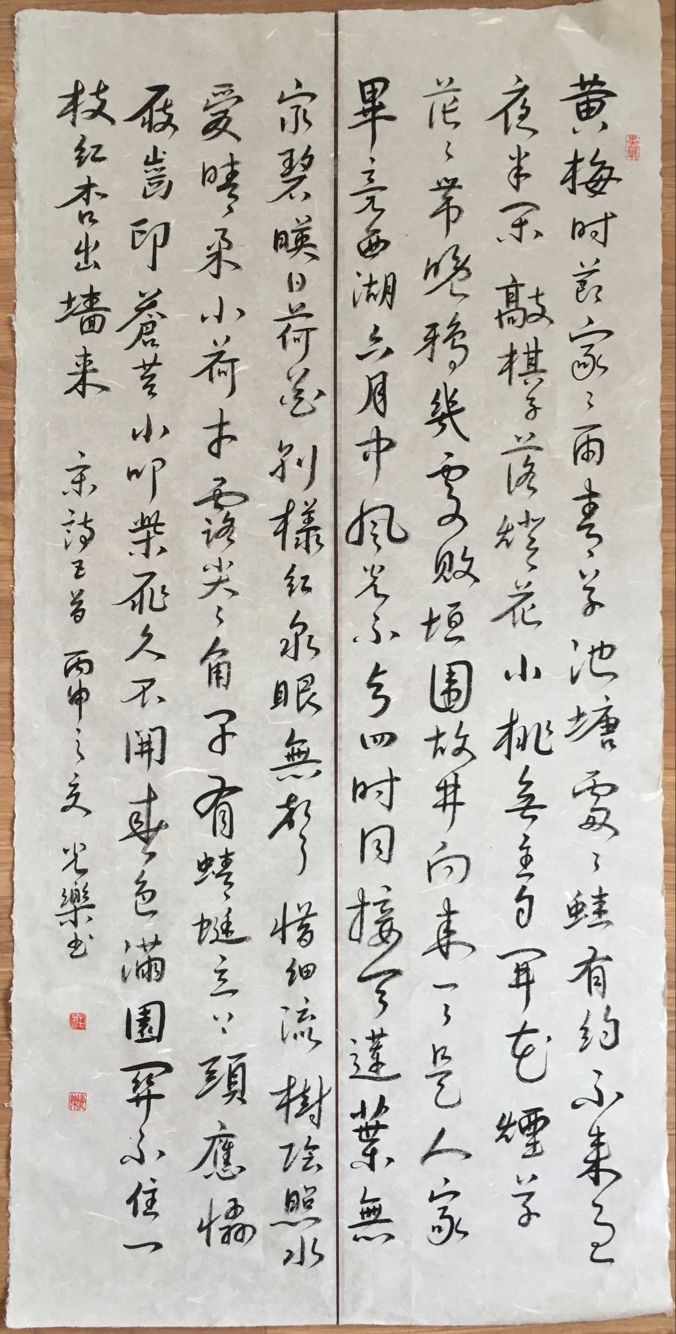 黄梅时節家〻雨青〻草池塘處〻蛙有約不来過
夜半閑敲棋子落燈花小桃無主自開花煙草
茫〻帶晚鴉幾處敗垣圍故井向来一〻是人家
畢竟西湖六月中風光不与四时同接天蓮葉無
窮碧暎日荷花别樣红泉眼無聲惜细流樹陰照水
愛晴柔小荷才露尖〻角早有蜻蜓立上頭應憐
屐齒印蒼苔小叩柴扉久不開春色滿園關不住一
枝红杏出墻来 宋詩五首 丙申之夏 光樂书